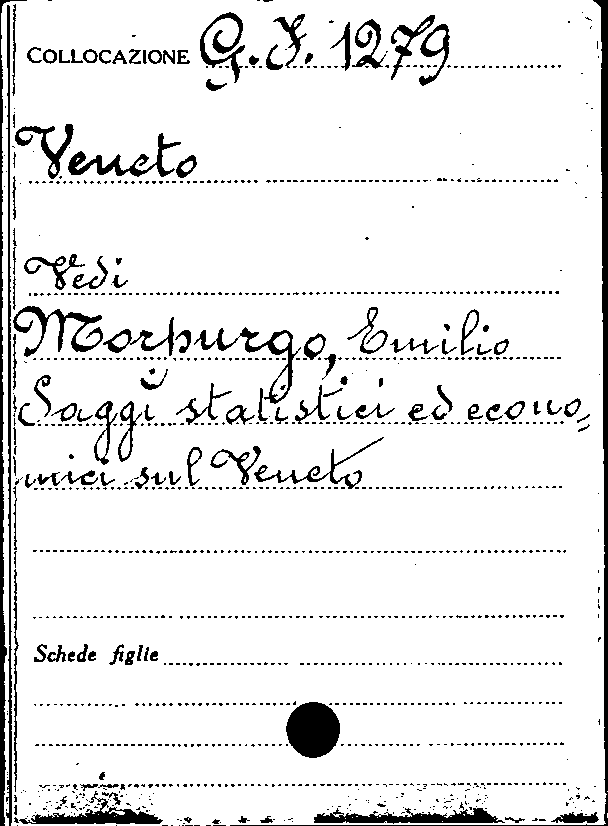 COLLOCAZIONE G.F. 1279
Veneto
Vedi
Morpurgo, Emilio
Saggi statistici ed econo=
mici sul Veneto
Schede figlie